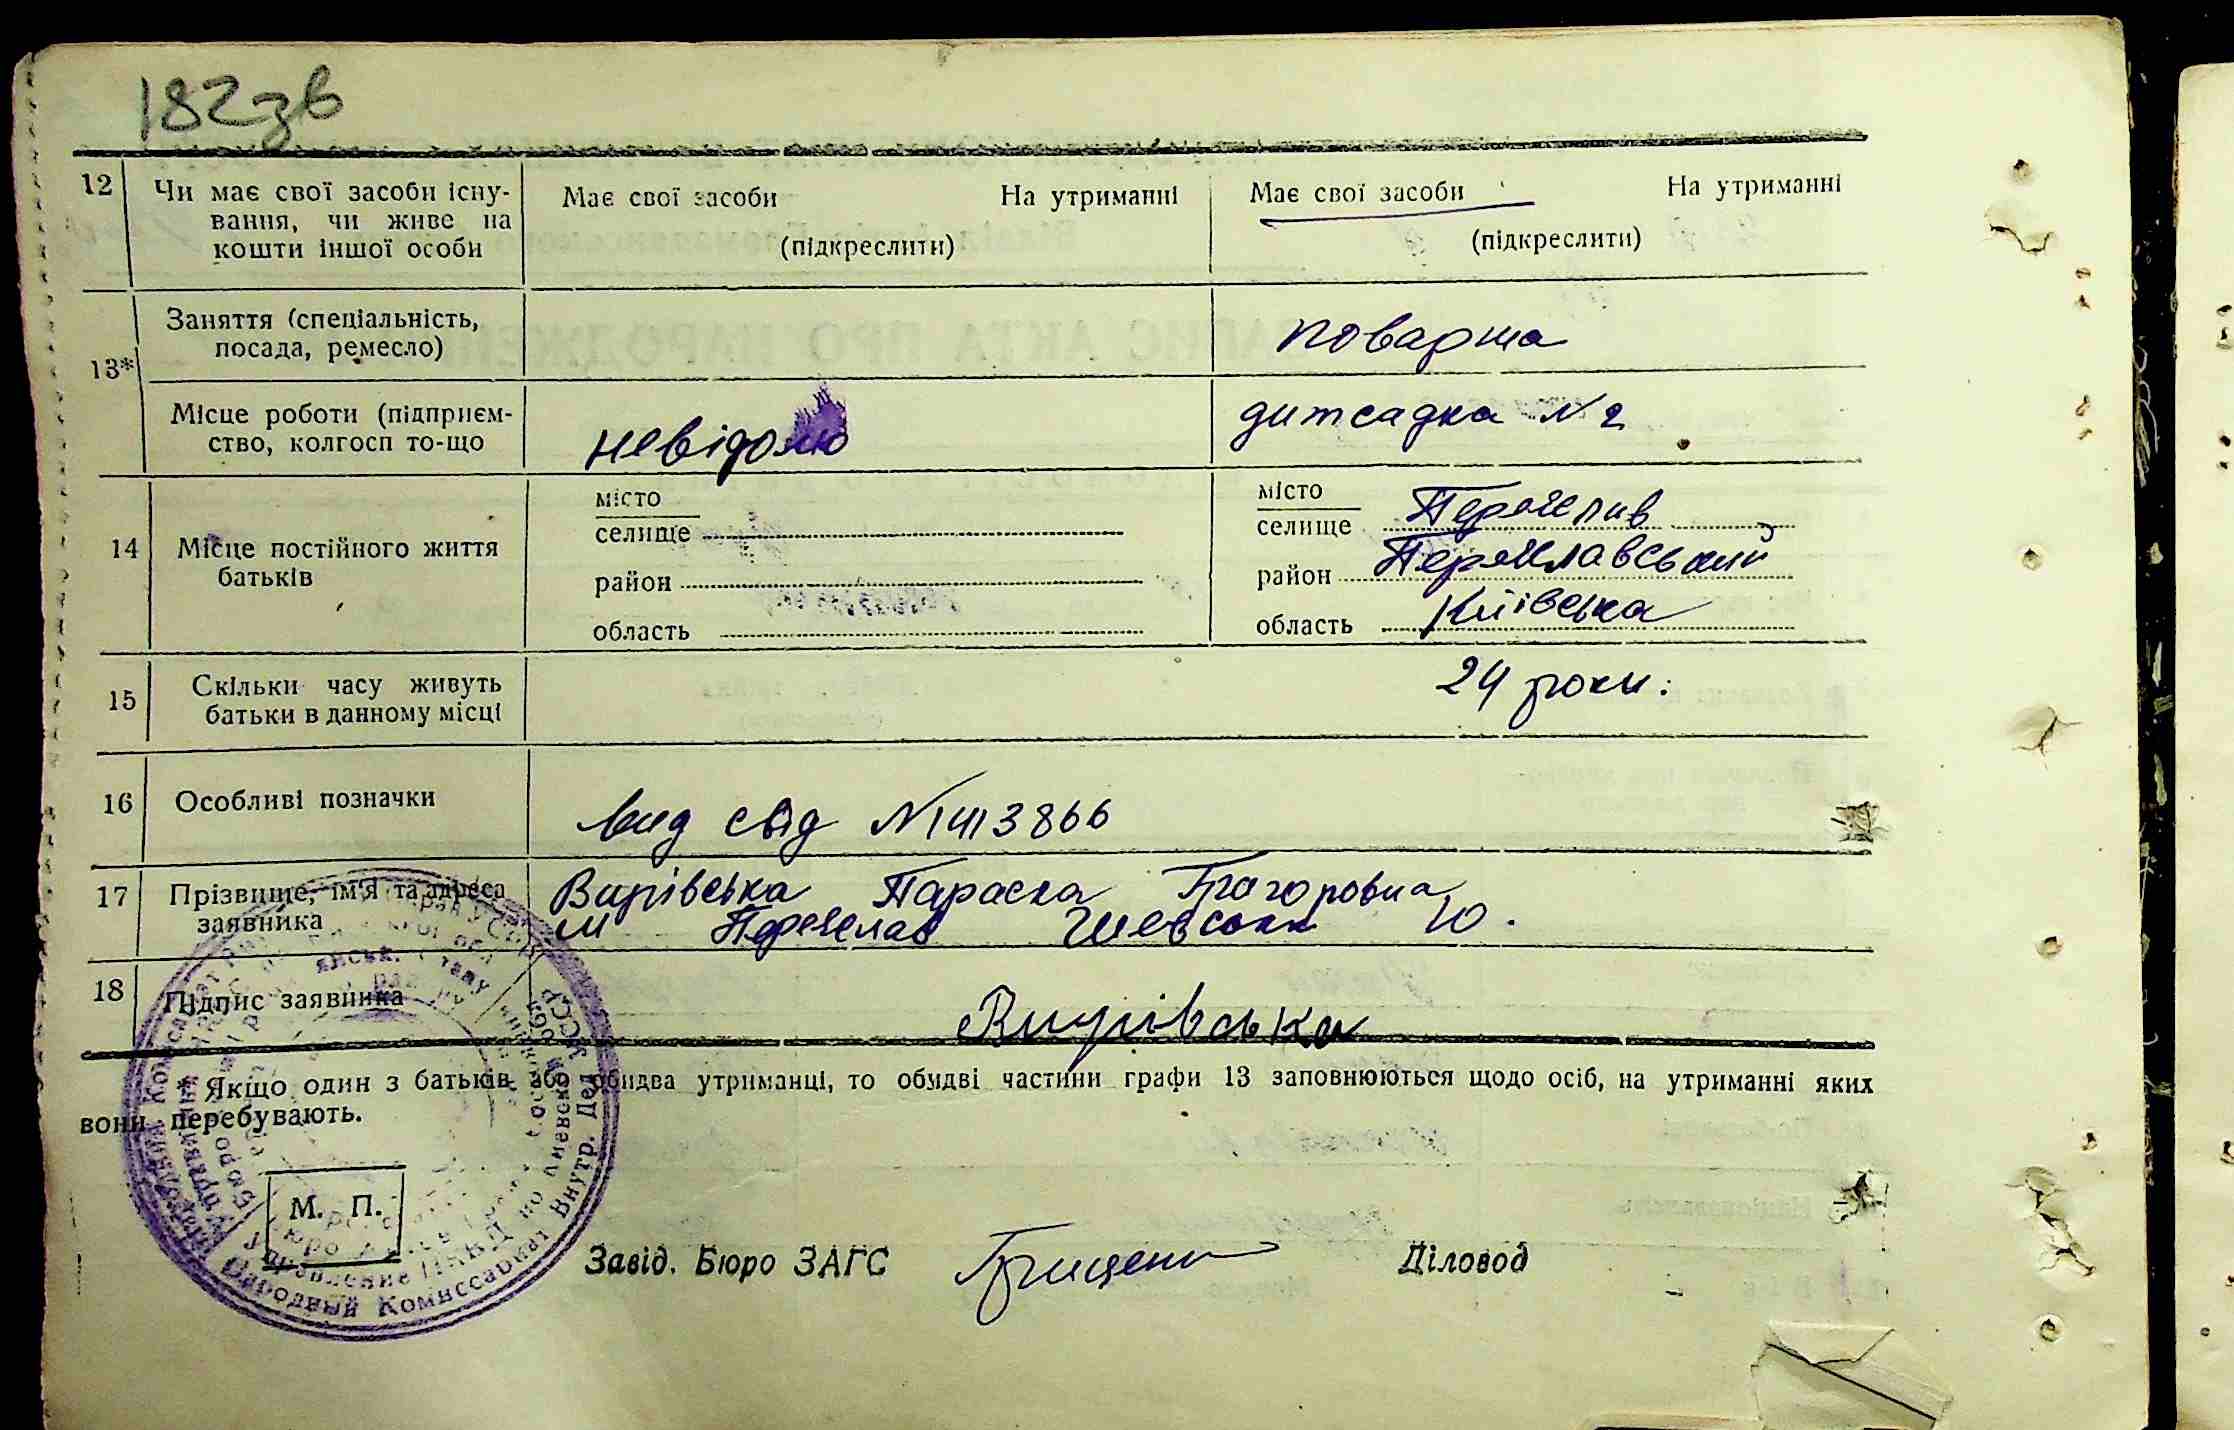 182зв
12 Чи має свої засоби існу-
вання, чи живе на
кошти іншої особи
Має свої засоби На утриманні
(підкреслити)
Має свої засоби На утриманні
(підкреслити)
13*
Заняття (спеціальність,
посада, ремесло)
поварша
Місце роботи (підприєм-
ство, колгосп то-що
невідомо
дитсадка № 2
14 Місце постійного життя
батьків
місто
селище
район
область
місто
селище Переяслив
район Переяславський
область Київська
15 Скільки часу живуть
батьки в данному місці
24 роки.
16 Особливі позначки
Вид свід № 1413866
17 Прізвище, ім'я та адреса
заявника
Вирівська Параска Григоровна
м Переяслав Шевськи 10.
18 Підпис заявника
Вирівська
Якщо один з батьків або обидва утриманці, то обидві частини графи 13 заповнюються щодо осіб, на утриманні яких
вони перебувають.
М. П.
Народный Комиссариат Внутр. Дел УССР
Завід. Бюро ЗАГС Грищен Діловод